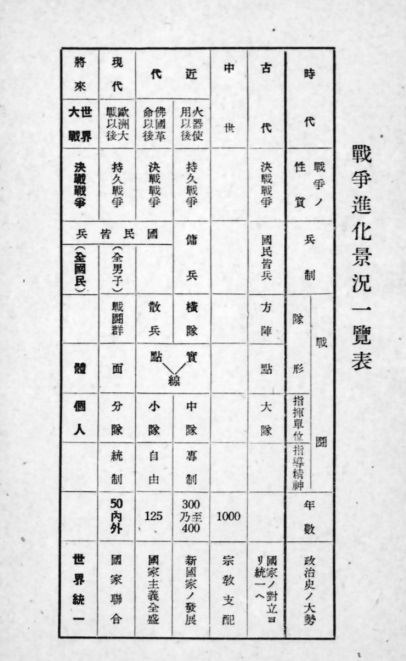 戰爭進化景況一覽表
時代
戰爭ノ性質
兵制
戰鬪
隊形
指揮單位
指導精神
年數
政治史ノ大勢
古代
決戰戰爭
國民皆兵
方陣
點
大隊
國家ノ對立ヨリ統一ヘ
中世
1000
宗敎支配
近代
火器使用以後
持久戰爭
傭兵
橫隊
實線
中隊
專制
300乃至400
新國家ノ發展
佛國革命以後
決戰戰爭
國民皆兵
散兵
點線
小隊
自由
125
國家主義全盛
現代
歐洲大戰以後
持久戰爭
(全男子)
戰鬪群
面
分隊
統制
50內外
國家聯合
將來
世界大戰
決戰戰爭
(全國民)
體
個人
世界統一